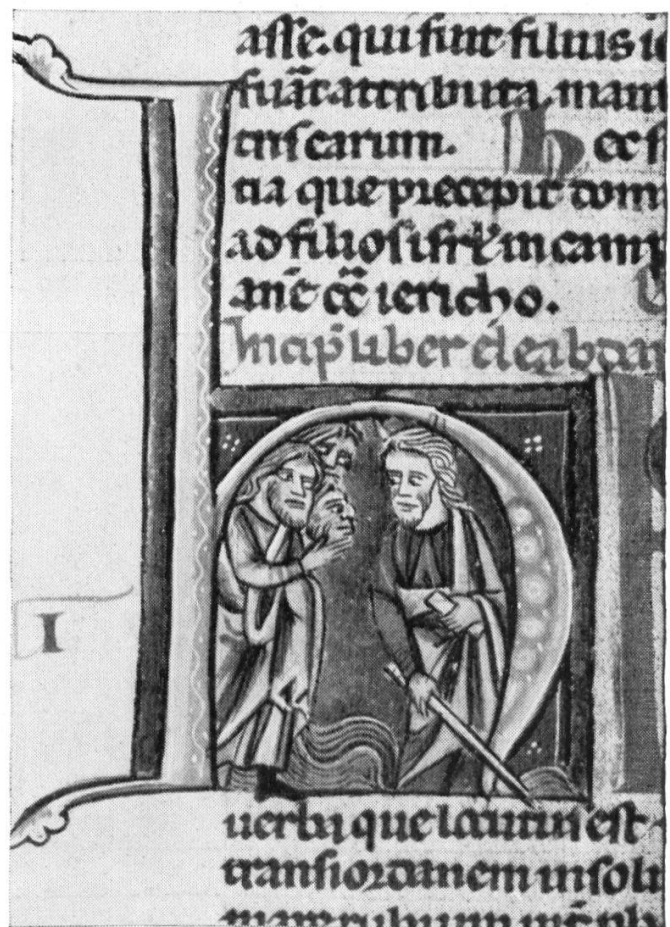 asse. qui fuit filius i
fuãt attributa. man
cris earum. hec s
tia que precepit dom
ad filios isrl' in camp
anẽ cͨ iericho.
Incip liber
I
H
uerba que locutus est
trans iordanem in soli
mare rubrum